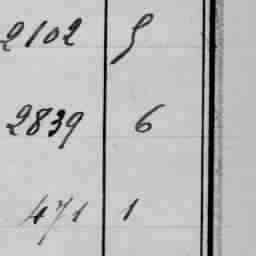 2102 5
2839 6
471 1